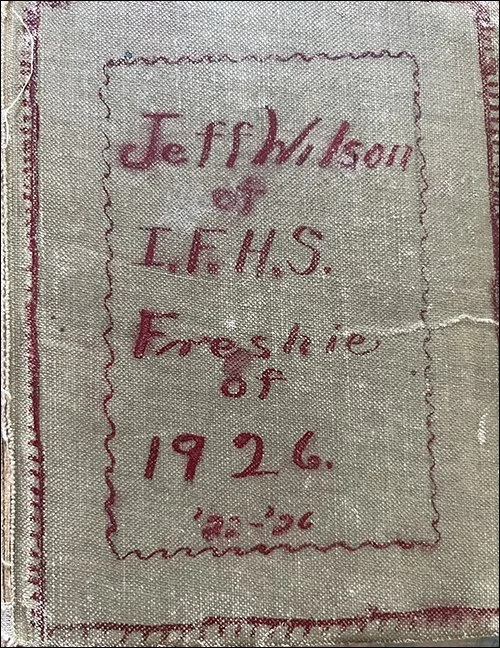 Jeff Wilson
of
I.F.H.S.
Freshie
of
1926.
'22-'26